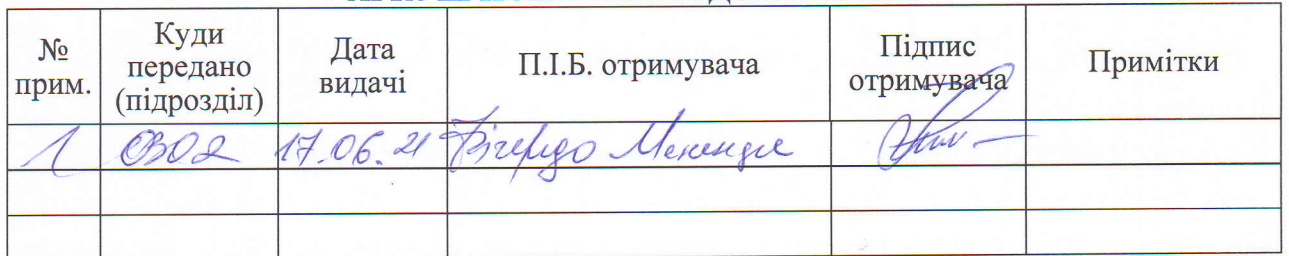 № прим. Куди передано (підрозділ) Дата видачі П.І.Б. отримувача Підпис отримувача Примітки
1 17.06.21